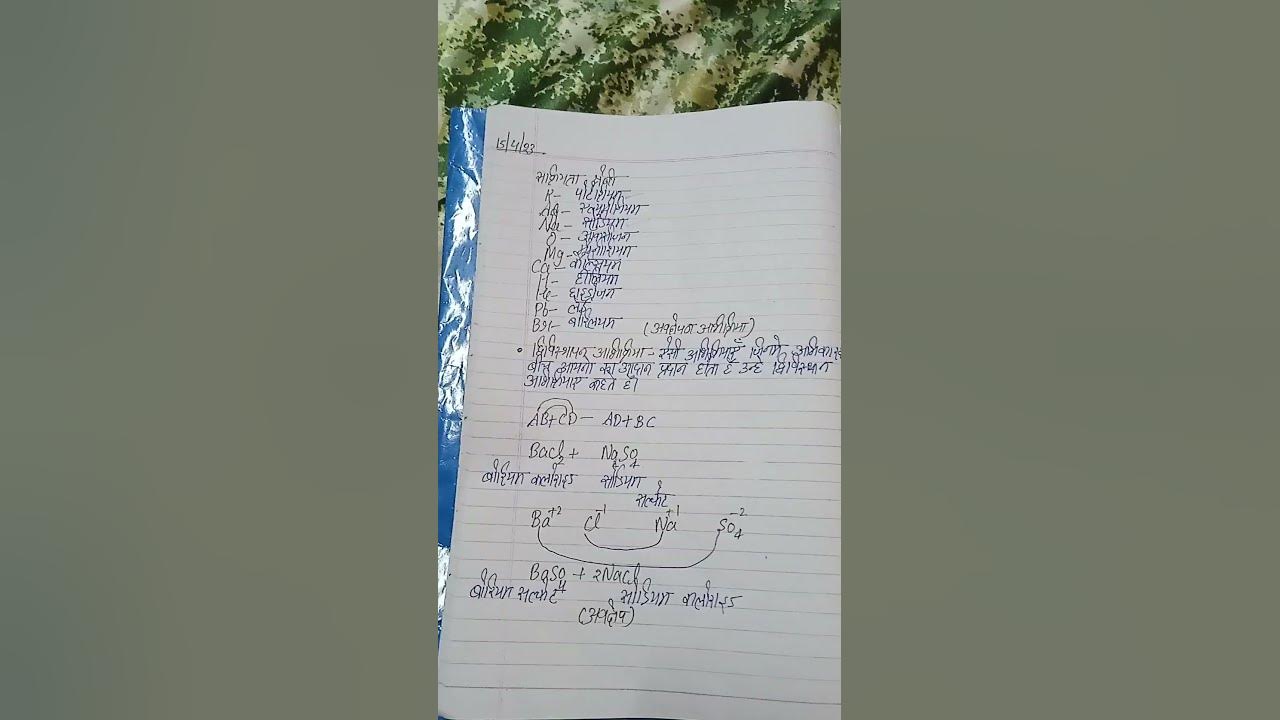 15/4/23
सक्रियता श्रेणी
K- पोटेशियम
Al- एल्युमीनियम
Na- सोडियम
O- आक्सीजन
Mg- मैग्नीशियम
Ca- कैल्सियम
H- हीलियम
He- हाइड्रोजन
Pb- लैड
- बेरिलियम (अवक्षेपण अभिक्रिया)
• द्विविस्थापन अभिक्रिया - ऐसी अभिक्रियाएँ जिनमे अभिकारक
बीच आयनो का आदान प्रदान होता है उन्हे द्विविस्थापन
अभिक्रियाएं कहते है।
AB+CD- AD+BC
BaCl₂ + Na₂SO₄
बेरियम क्लोराइड सोडियम
सल्फेट
Ba⁺² Cl⁻¹ Na⁺¹ SO₄⁻²
BaSO₄ + 2NaCl
बेरियम सल्फेट सोडियम क्लोराइड
(अवक्षेप)